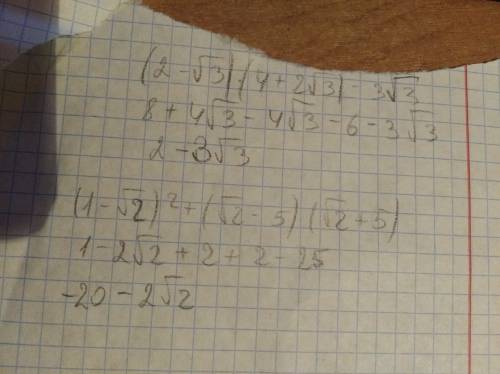 (2-√3)(4+2√3)-3√3
8+4√3-4√3-6-3√3
2-3√3
(1-√2)²+(√2-5)(√2+5)
1-2√2+2+2-25
-20-2√2